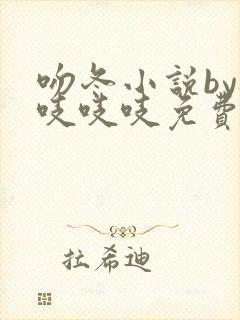 吻冬小説by
吱吱吱免費
拉希迪